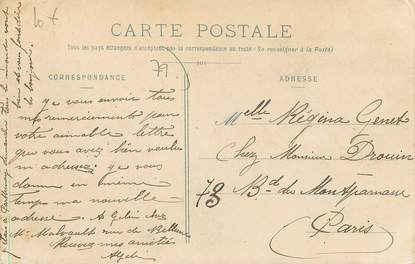 CARTE POSTALE
Tous les pays étrangers n'acceptent pas la correspondance au recto (Se renseigner à la Poste)
79
CORRESPONDANCE
ge vous envoie tous
mes remerciements pour
votre aimable lettre
que vous avez bien voulu
m adressez ge vous
donne en même
temps ma nouvelle
adresse. A Gelin chez
Mr Malvault rue de
Recevez mes amitiés
AGelin
tout le monde vont
bien
le bonjour
ADRESSE
Melle Régina Genet
Chez Monsieur Drouin
73 Bd du Montparnasse
Paris